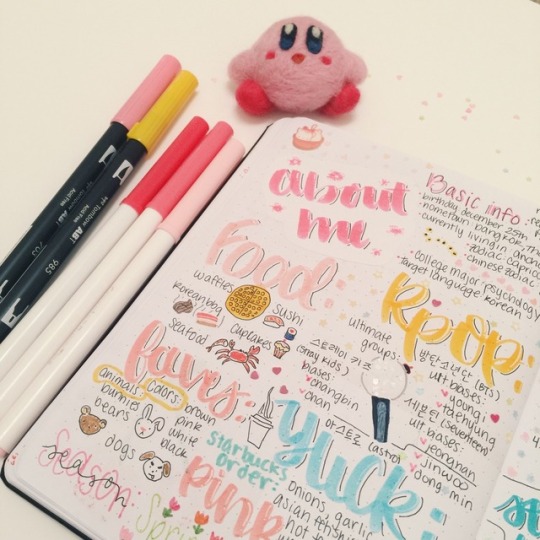 about
me
Basic info:
•birthday december 25th
•hometown bangkok,
•currently living in
•zodiac
•chinese zodiac
•college major: psychology
•target language: korean
food
waffles
sushi
korean bbq
seafood
cupcakes
Kpop
ultimate
groups:
스트레이 키즈
(stray kids)
biases:
changbin
chan
아스트로 (astro)
방탄소년단 (BTS)
ult biases:
yoongi
taehyung
세븐틴 (seventeen)
ult bases:
jeonghan
jinwoo
dong min
faves:
animals:
bunnies
bears
dogs
colors:
brown
pink
white
black
season
season
Spri
starbucks
order:
pink
yuck:
onions, garlic
asian
hot
ABT
Tombow
985
703